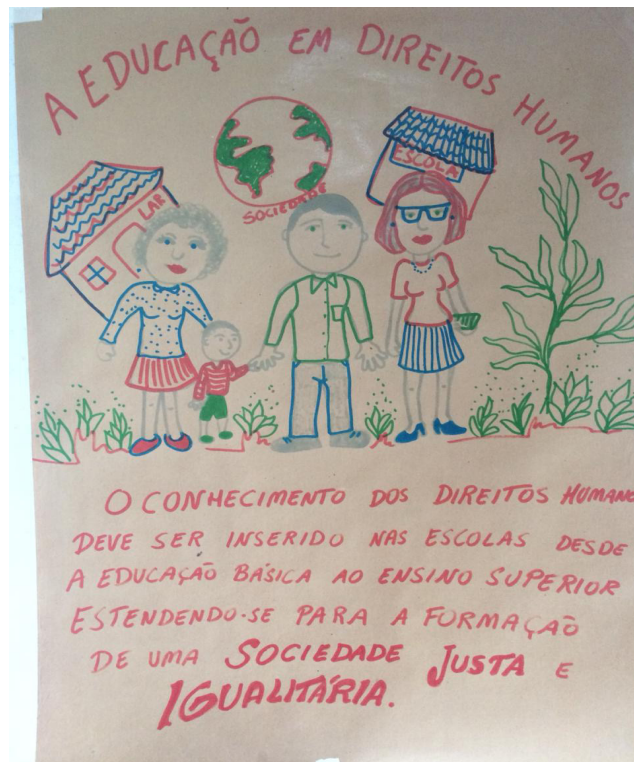 A EDUCAÇÃO EM DIREITOS HUMANOS
LAR
SOCIEDADE
ESCOLA
O CONHECIMENTO DOS DIREITOS HUMANO
DEVE SER INSERIDO NAS ESCOLAS DESDE
A EDUCAÇÃO BÁSICA AO ENSINO SUPERIOR
ESTENDENDO-SE PARA A FORMAÇÃO
DE UMA SOCIEDADE JUSTA E
IGUALITÁRIA.